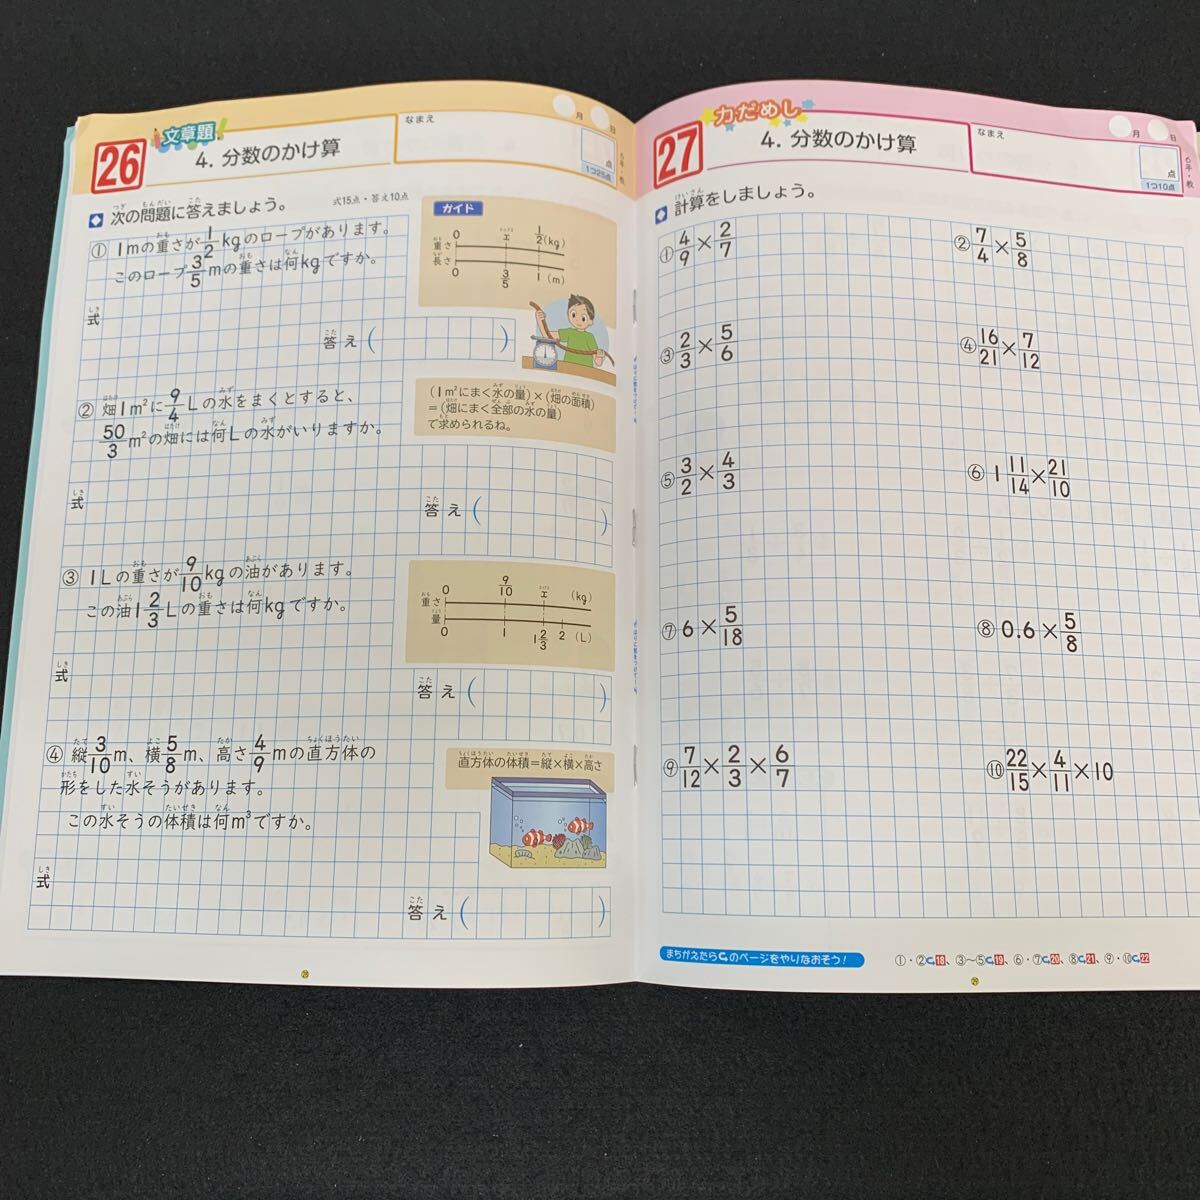 26
文章題
4. 分数のかけ算
なまえ
月 日
点
1つ25点
6年・教
次の問題に答えましょう。 式15点・答え10点
① 1mの重さが1/2kgのロープがあります。
このロープ3/5mの重さは何kgですか。
式
答え( )
ガイド
重さ 0 x 1/2 (kg)
長さ 0 3/5 1 (m)
② 畑1m²に9/4Lの水をまくとすると、
50/3m²の畑には何Lの水がいりますか。
式
答え( )
(1m²にまく水の量)×(畑の面積)
=(畑にまく全部の水の量)
で求められるね。
③ 1Lの重さが9/10kgの油があります。
この油1 2/3Lの重さは何kgですか。
式
答え( )
重さ 0 9/10 x (kg)
量 0 1 1 2/3 2 (L)
④ 縦3/10m、横5/8m、高さ4/9mの直方体の
形をした水そうがあります。
この水そうの体積は何m³ですか。
式
答え( )
直方体の体積=縦×横×高さ
28
27
力だめし
4. 分数のかけ算
なまえ
月 日
点
1つ10点
6年・教
計算をしましょう。
① 4/9×2/7
② 7/4×5/8
③ 2/3×5/6
④ 16/21×7/12
⑤ 3/2×4/3
⑥ 1 11/14×21/10
⑦ 6×5/18
⑧ 0.6×5/8
⑨ 7/12×2/3×6/7
⑩ 22/15×4/11×10
まちがえたら のページをやりなおそう!
①・② 18、③~⑤ 19、⑥・⑦ 20、⑧ 21、⑨・⑩ 22
29